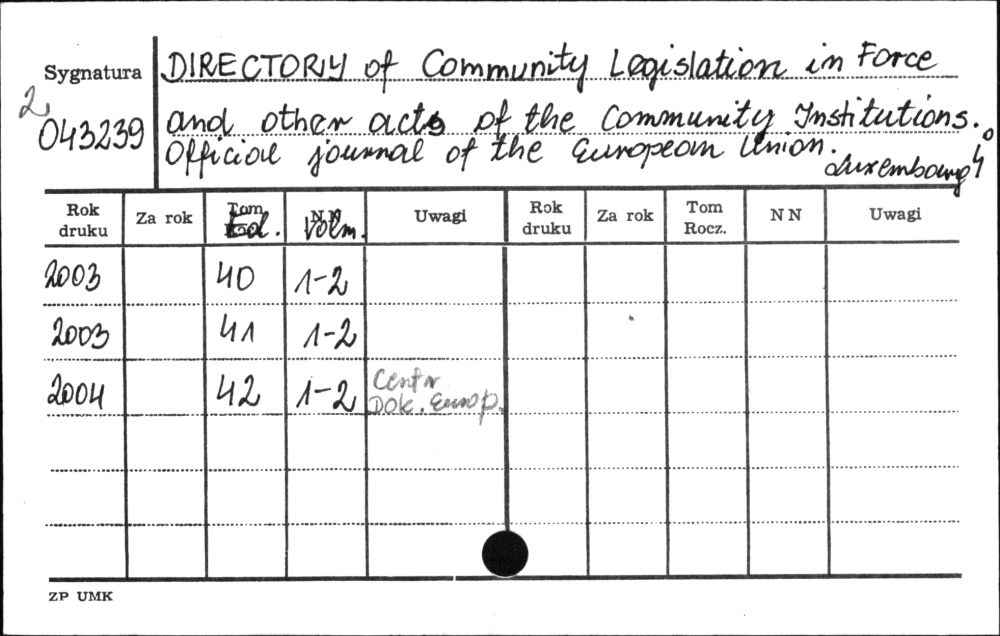 Sygnatura
2
043239
DIRECTORY of Community Legislation in Force
and other acts of the Community Institutions.
Official journal of the European Union.
Luxembourg 4°
Rok druku Za rok Ed. Volm. Uwagi Rok druku Za rok Tom Rocz. N N Uwagi
2003 40 1-2
2003 41 1-2
2004 42 1-2 Centr Dok. Europ.
ZP UMK